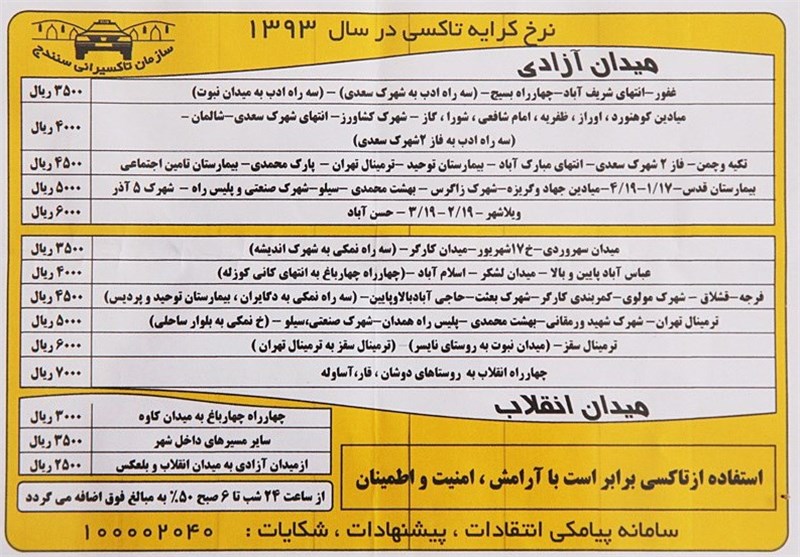 نرخ کرایه تاکسی در سال ۱۳۹۳
سازمان تاکسیرانی سنندج
میدان آزادی
غفور-انتهای شریف آباد-چهارراه بسیج- (سه راه ادب به شهرک سعدی) - (سه راه ادب به میدان نبوت) ۳۵۰۰ ریال
میادین کوهنورد ، اوراز ، ظفریه ، امام شافعی ، شورا ، گاز - شهرک کشاورز- انتهای شهرک سعدی-شالمان -
(سه راه ادب به فاز ۲شهرک سعدی) ۴۰۰۰ ریال
تکیه وچمن- فاز ۲ شهرک سعدی- انتهای مبارک آباد - بیمارستان توحید -ترمینال تهران - پارک محمدی- بیمارستان تامین اجتماعی ۴۵۰۰ ریال
بیمارستان قدس-۱/۱۷-۴/۱۹-میادین جهاد وگریزه-شهرک زاگرس- بهشت محمدی -سیلو-شهرک صنعتی و پلیس راه - شهرک ۵ آذر ۵۰۰۰ ریال
ویلاشهر - ۲/۱۹ - ۳/۱۹ - حسن آباد ۶۰۰۰ ریال
میدان سهروردی-خ۱۷شهریور-میدان کارگر- (سه راه نمکی به شهرک اندیشه) ۳۵۰۰ ریال
عباس آباد پایین و بالا - میدان لشکر - اسلام آباد -(چهارراه چهارباغ به انتهای کانی کوزله) ۴۰۰۰ ریال
فرجه-قشلاق - شهرک مولوی-کمربندی کارگر-شهرک بعثت-حاجی آبادبالاوپایین- (سه راه نمکی به دگایران ، بیمارستان توحید و پردیس) ۴۵۰۰ ریال
ترمینال تهران- شهرک شهید ورمقانی-بهشت محمدی- پلیس راه همدان-شهرک صنعتی،سیلو - (خ نمکی به بلوار ساحلی) ۵۰۰۰ ریال
ترمینال سقز- (میدان نبوت به روستای نایسر) (ترمینال سقز به ترمینال تهران ) ۶۰۰۰ ریال
چهارراه انقلاب به روستاهای دوشان ، قار،آساوله ۷۰۰۰ ریال
میدان انقلاب
چهارراه چهارباغ به میدان کاوه ۳۰۰۰ ریال
سایر مسیرهای داخل شهر ۳۵۰۰ ریال
ازمیدان آزادی به میدان انقلاب و بلعکس ۲۵۰۰ ریال
استفاده ازتاکسی برابر است با آرامش ، امنیت و اطمینان
از ساعت ۲۴ شب تا ۶ صبح ۵۰٪ به مبالغ فوق اضافه می گردد
سامانه پیامکی انتقادات ، پیشنهادات ، شکایات : ۱۰۰۰۰۲۰۴۰